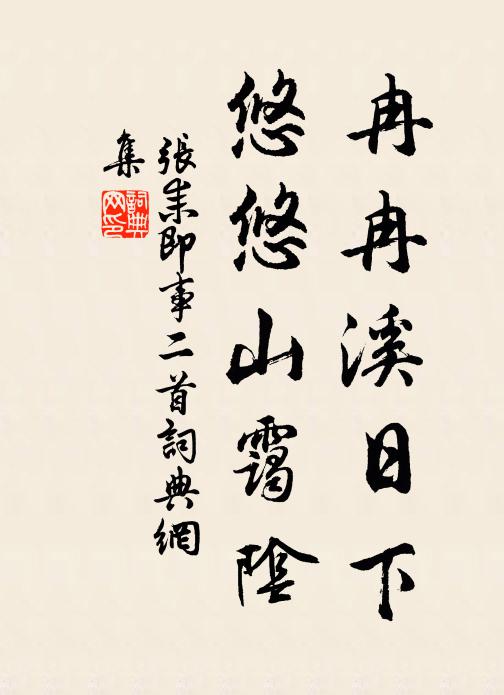 冉冉溪日下
悠悠山靄陰
張耒即事二首詞典網
集
詞典
网印